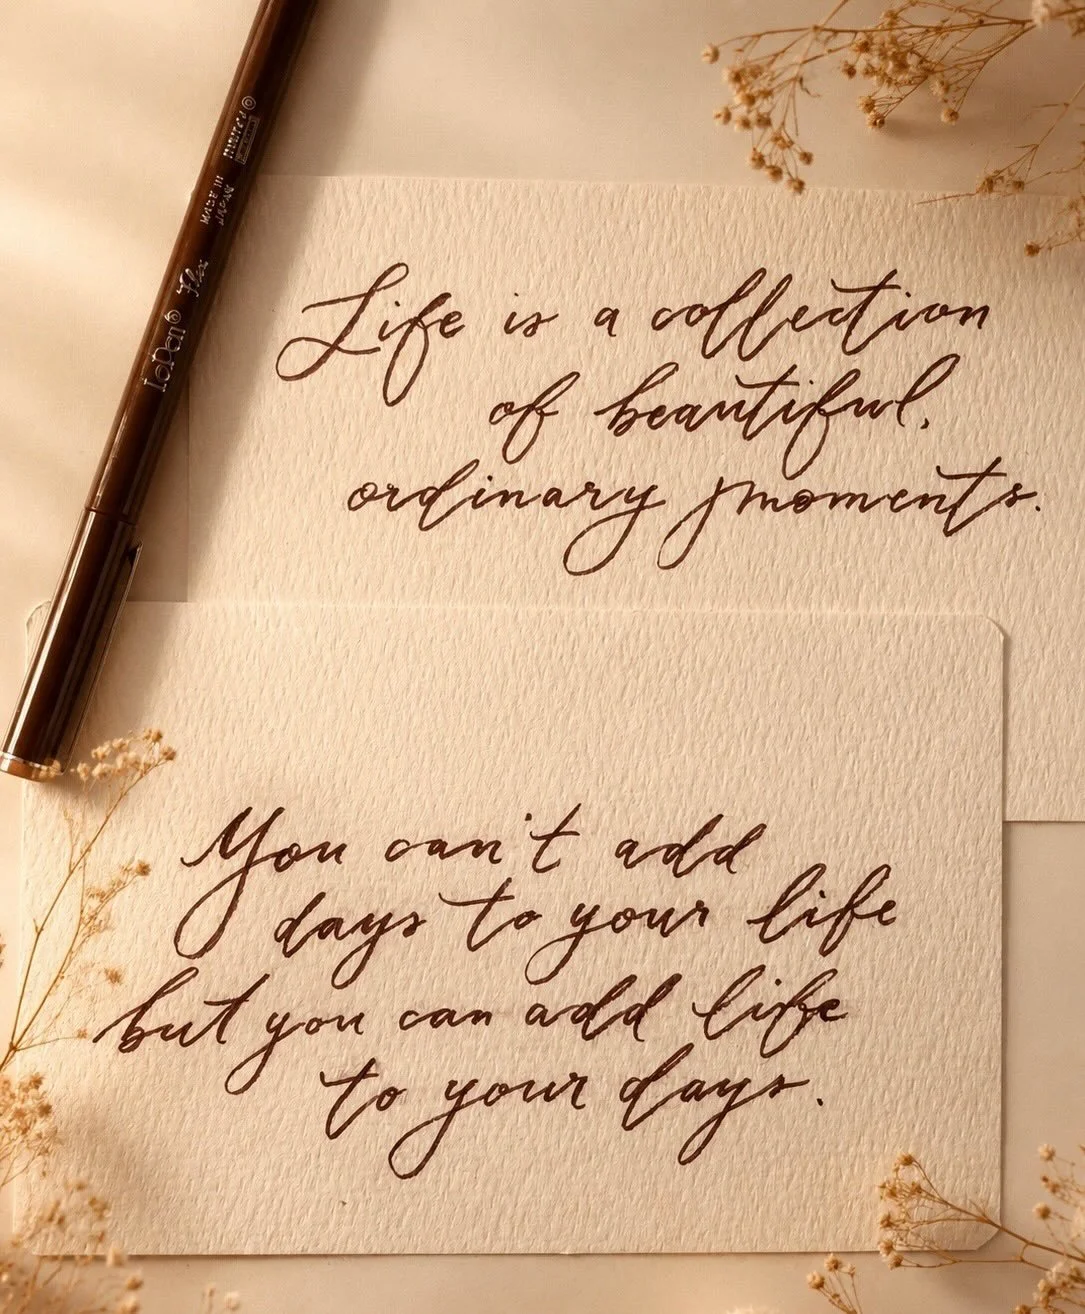 LePen® Flex
MADE IN
JAPAN
Life is a collection
of beautiful,
ordinary moments.
You can't add
days to your life
but you can add life
to your days.